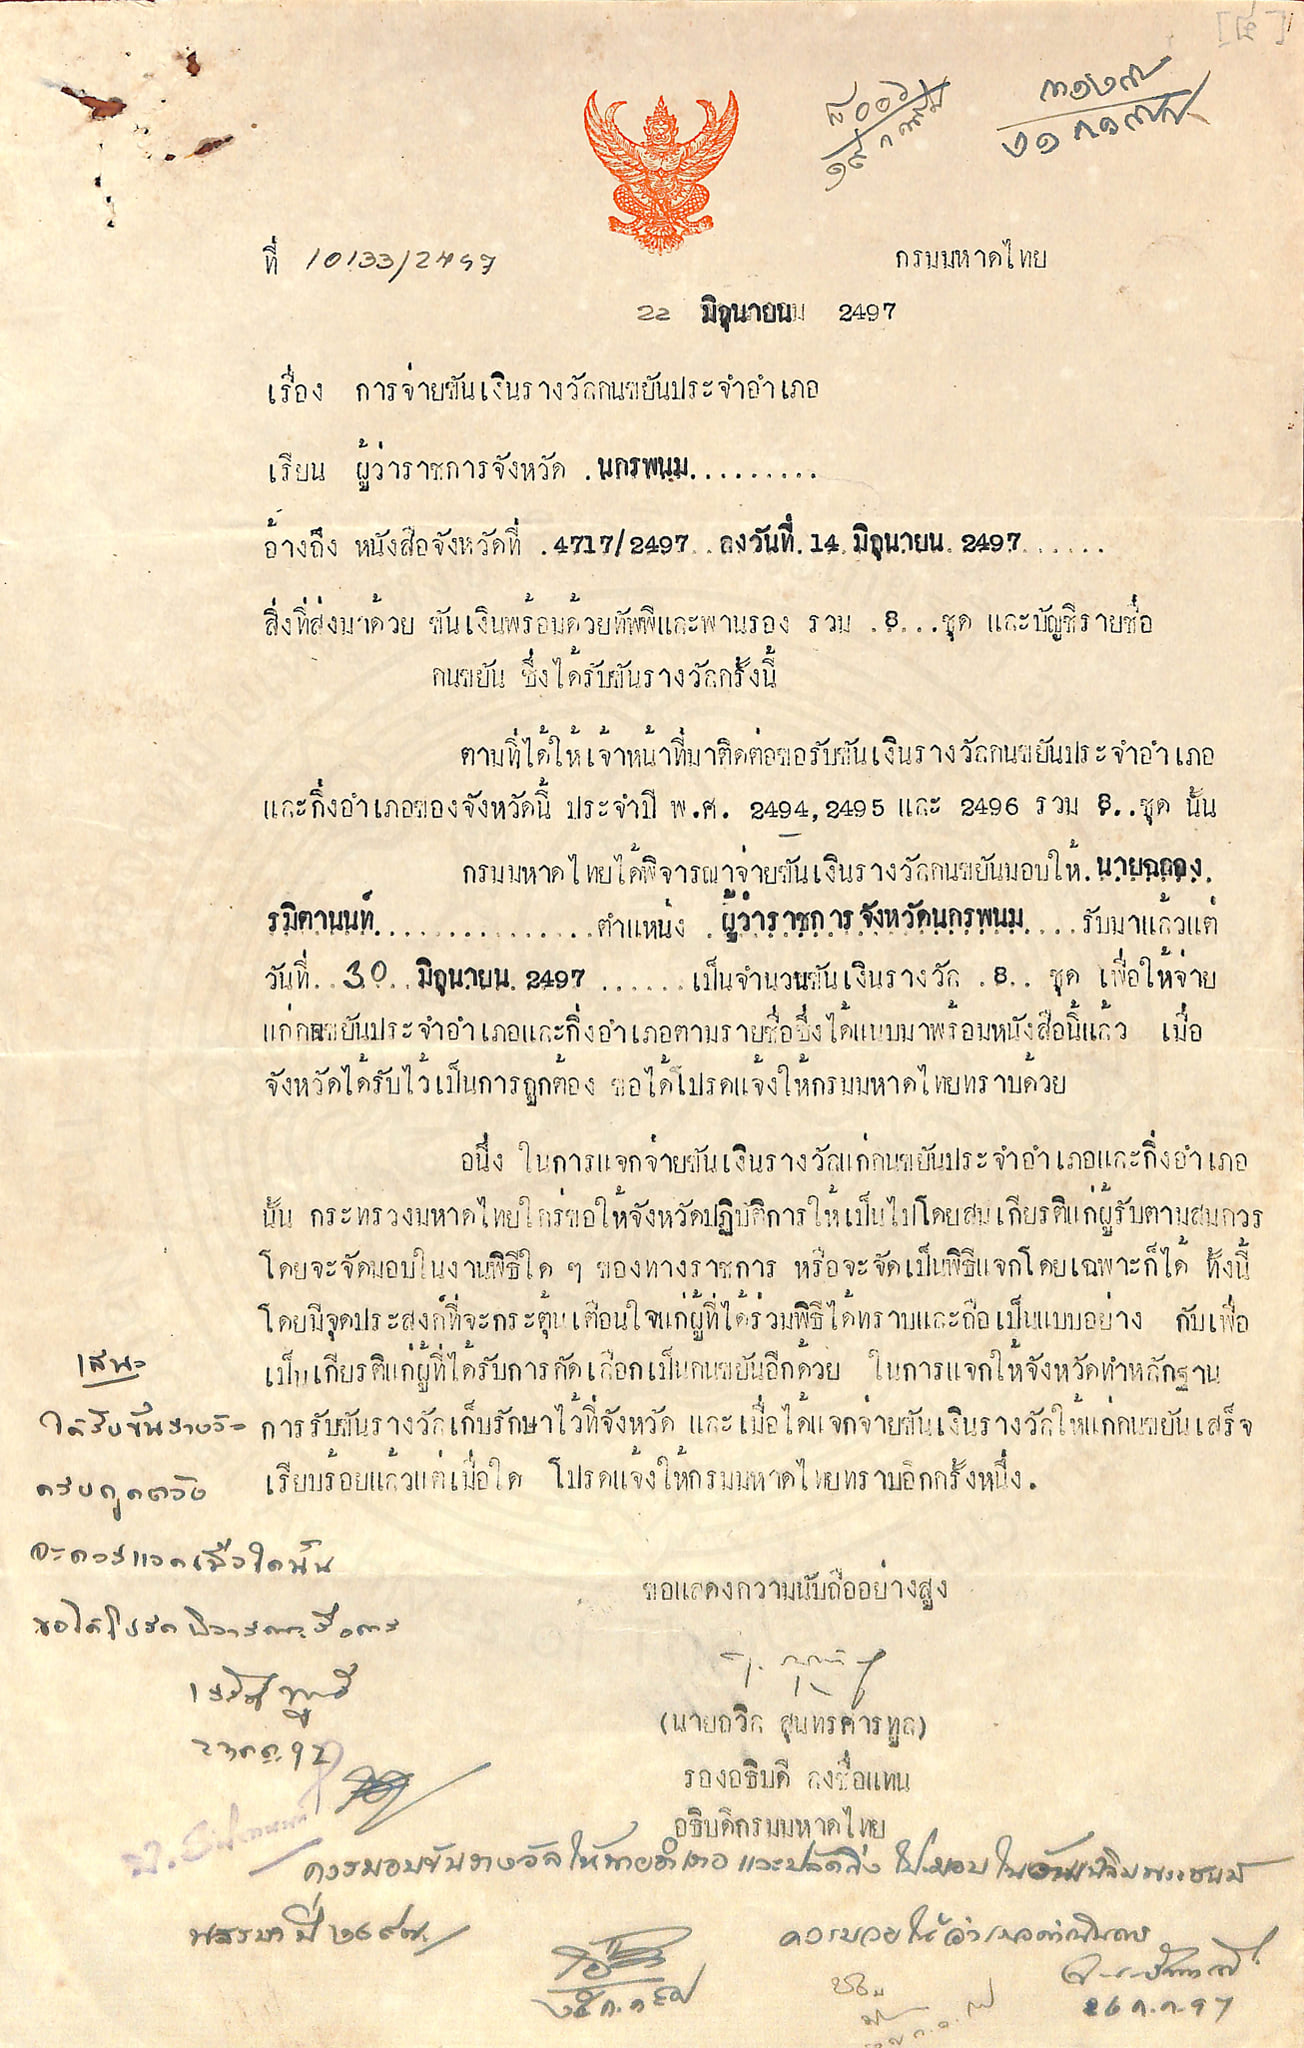 [๔]
ที่ 10133/2497
กรมมหาดไทย
22 มิถุนายน 2497
เรื่อง การจ่ายขันเงินรางวัลคนขยันประจำอำเภอ
เรียน ผู้ว่าราชการจังหวัด .นครพนม.........
อ้างถึง หนังสือจังหวัดที่ .4717/2497..ลงวันที่.14.มิถุนายน.2497......
สิ่งที่ส่งมาด้วย ขันเงินพร้อมด้วยทัพพีและพานรอง รวม .8...ชุด และบัญชีรายชื่อ
คนขยัน ซึ่งได้รับขันรางวัลครั้งนี้
ตามที่ได้ให้เจ้าหน้าที่มาติดต่อขอรับขันเงินรางวัลคนขยันประจำอำเภอ
และกิ่งอำเภอของจังหวัดนี้ ประจำปี พ.ศ. 2494,2495 และ 2496 รวม 8..ชุด นั้น
กรมมหาดไทยได้พิจารณาจ่ายขันเงินรางวัลคนขยันมอบให้.นายฉลอง.
รมิตานนท์...............ตำแหน่ง .ผู้ว่าราชการจังหวัดนครพนม....รับมาแล้วแต่
วันที่..30..มิถุนายน.2497 ......เป็นจำนวนขันเงินรางวัล .8.. ชุด เพื่อให้จ่าย
แก่คนขยันประจำอำเภอและกิ่งอำเภอตามรายชื่อซึ่งได้แนบมาพร้อมหนังสือนี้แล้ว เมื่อ
จังหวัดได้รับไว้เป็นการถูกต้อง ขอได้โปรดแจ้งให้กรมมหาดไทยทราบด้วย
อนึ่ง ในการแจกจ่ายขันเงินรางวัลแก่คนขยันประจำอำเภอและกิ่งอำเภอ
นั้น กระทรวงมหาดไทยใคร่ขอให้จังหวัดปฏิบัติการให้เป็นไปโดยสมเกียรติแก่ผู้รับตามสมควร
โดยจะจัดมอบในงานพิธีใด ๆ ของทางราชการ หรือจะจัดเป็นพิธีแจกโดยเฉพาะก็ได้ ทั้งนี้
โดยมีจุดประสงค์ที่จะกระตุ้นเตือนใจแก่ผู้ที่ได้ร่วมพิธีได้ทราบและถือเป็นแบบอย่าง กับเพื่อ
เป็นเกียรติแก่ผู้ที่ได้รับการคัดเลือกเป็นคนขยันอีกด้วย ในการแจกให้จังหวัดทำหลักฐาน
การรับขันรางวัลเก็บรักษาไว้ที่จังหวัด และเมื่อได้แจกจ่ายขันเงินรางวัลให้แก่คนขยันเสร็จ
เรียบร้อยแล้วแต่เมื่อใด โปรดแจ้งให้กรมมหาดไทยทราบอีกครั้งหนึ่ง.
ขอแสดงความนับถืออย่างสูง
(นายถวิล สุนทรศารทูล)
รองอธิบดี ลงชื่อแทน
อธิบดีกรมมหาดไทย
เสนอ
ได้รับขันรางวัล
ครบถูกต้อง
จะควรแจกเมื่อใดนั้น
ขอได้โปรดพิจารณาสั่งการ
ควรมอบขันรางวัลให้นายอำเภอ และปลัดกิ่ง ไปมอบในวันเฉลิมพระชนม์
พรรษาปี ๒๔๙๗
26 ก.ค. 97